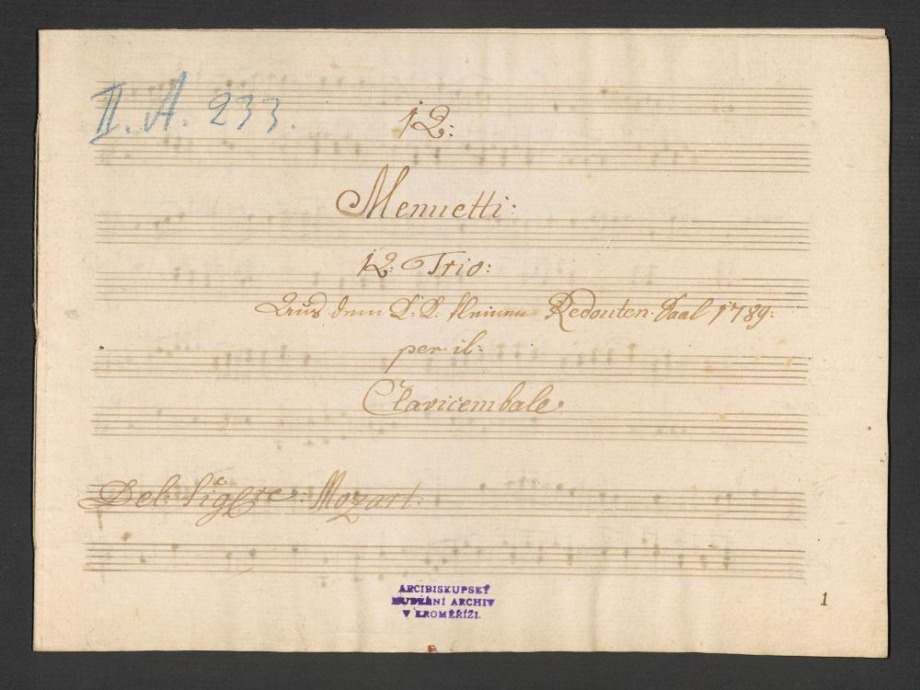 II. A. 233.
12:
Menuetti:
12: Trio:
Aus dem K: K: kleinen Redouten-Saal 1789:
per il:
Clavicembale
Del: Sigre: Mozart:
ARCIBISKUPSKÝ
HUDEBNÍ ARCHIV
V KROMĚŘÍŽI.
1